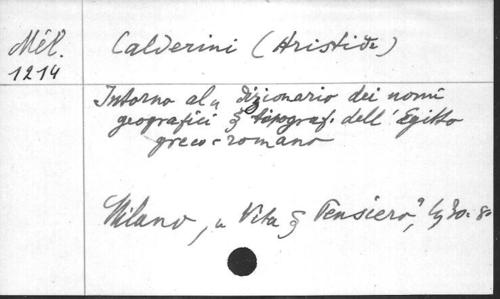 Mél.
1214
Calderini (Aristide)
Intorno al « dizionario dei nomi
geografici e topograf. dell'Egitto
greco-romano
Milano, « Vita e Pensiero", 1930. 8º